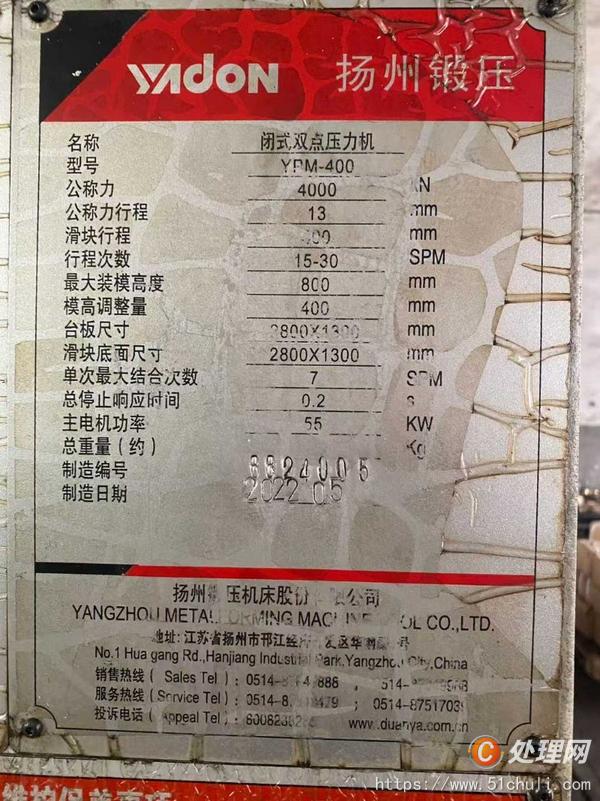 YADON 扬州锻压
名称 闭式双点压力机
型号 YPM-400
公称力 4000 KN
公称力行程 13 mm
滑块行程 mm
行程次数 15-30 SPM
最大装模高度 800 mm
模高调整量 400 mm
台板尺寸 2800X1300 mm
滑块底面尺寸 2800X1300 mm
单次最大结合次数 7 SPM
总停止响应时间 0.2 s
主电机功率 55 KW
总重量（约） Kg
制造编号 6824005
制造日期 2022 05
扬州 压机床股份 公司
YANGZHOU METAL FORMING MACHINE TOOL CO.,LTD.
地址：江苏省扬州市邗江经 发区华 号
No.1 Hua gang Rd.,Hanjiang Industrial Park,Yangzhou City,China
销售热线 ( Sales Tel ) : 0514- 886 ;
服务热线 (Service Tel) : 0514- ; 0514-8751703
投诉电话 ( Appeal Tel ) : www.duanya.com.cn
C 处理网
https://www.51chuli.com
维护保养